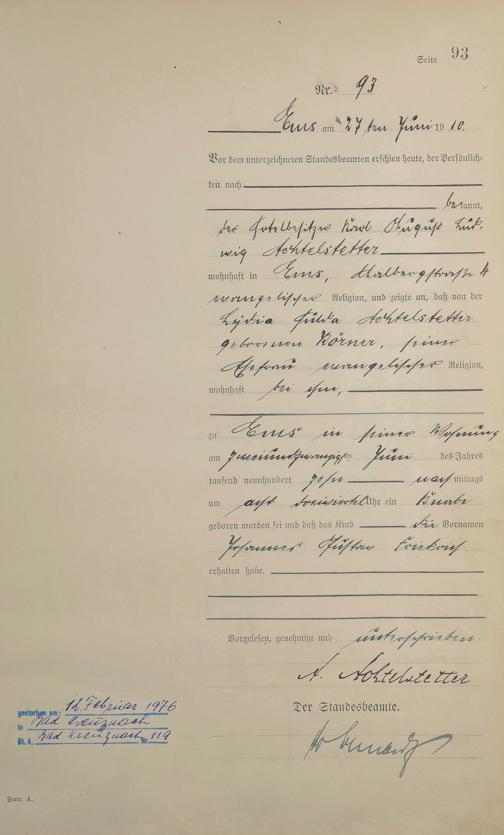 Seite 93
Nr. 93
Ems am 27ten Juni 1910.
Vor dem unterzeichneten Standesbeamten erschien heute, der Persönlich-
keit nach
bekannt,
der Hotelbesitzer Karl August Lud-
wig Achtelstetter
wohnhaft in Ems, Malbergstraße 4
evangelischer Religion, und zeigte an, daß von der
Lydia Hulda Achtelstetter
geborenen Körner, seiner
Ehefrau evangelischer Religion,
wohnhaft bei ihm,
zu Ems in seiner Wohnung
am zweiundzwanzigsten Juni des Jahres
tausend neunhundert zehn nachmittags
um acht dreiviertel Uhr ein Knabe
geboren worden sei und daß das Kind die Vornamen
Johannes Gustav Friedrich
erhalten habe.
Vorgelesen, genehmigt und unterschrieben
A. Achtelstetter
Der Standesbeamte.
gestorben am: 12. Februar 1976
in Bad Kreuznach
St. A. Bad Kreuznach Nr. 119
Form. A.